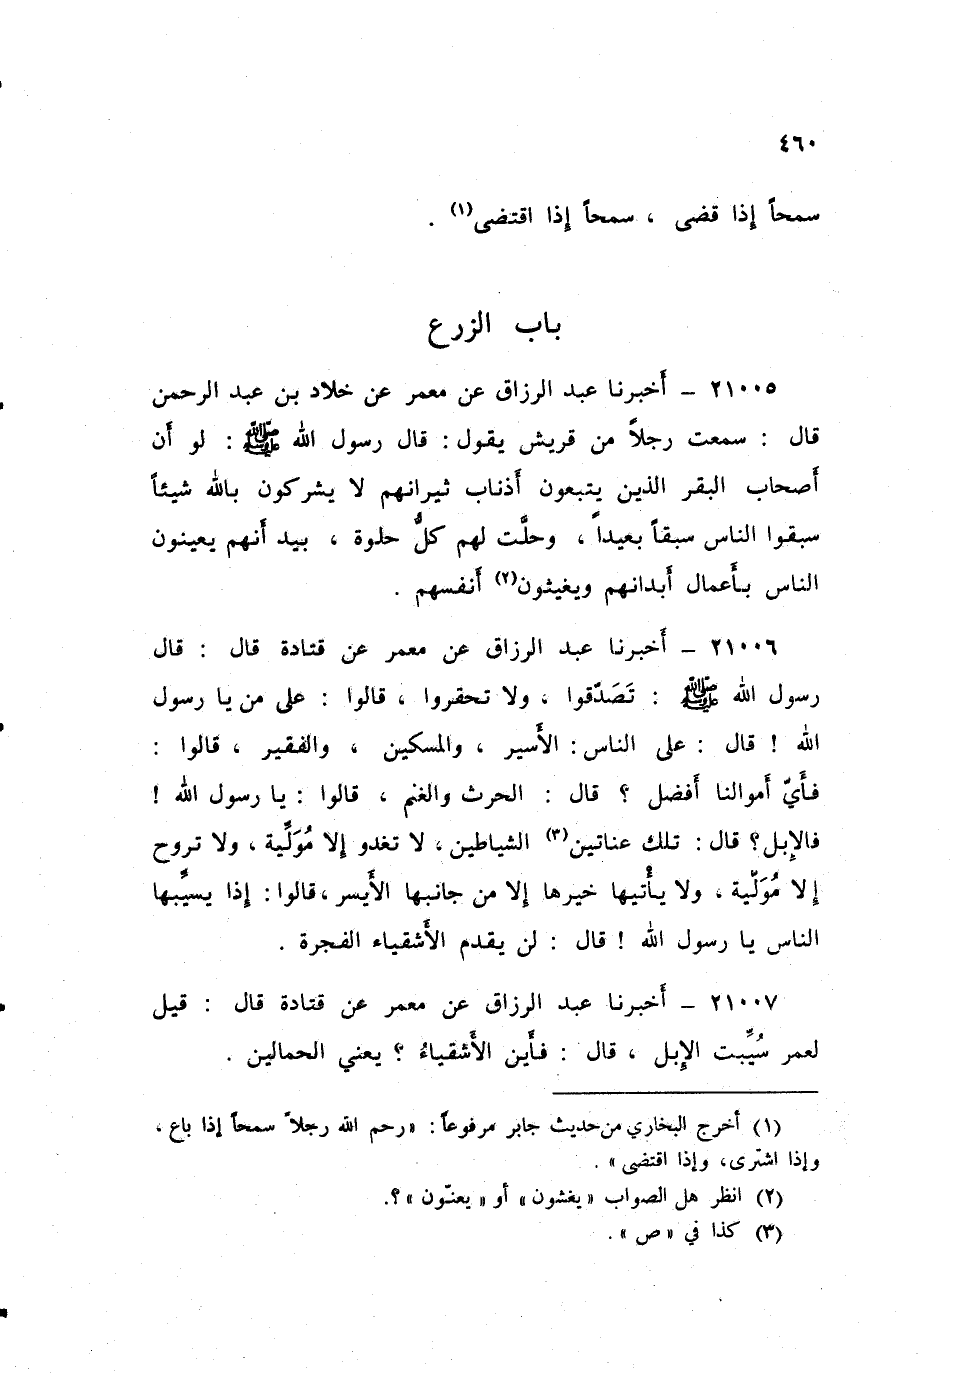 ٤٦٠
سمحاً إذا قضى ، سمحاً إذا اقتضى(١) .
باب الزرع
٢١٠٠٥ – أخبرنا عبد الرزاق عن معمر عن خلاد بن عبد الرحمن
قال : سمعت رجلاً من قريش يقول : قال رسول الله ﷺ : لو أن
أصحاب البقر الذين يتبعون أذناب ثيرانهم لا يشركون بالله شيئاً
سبقوا الناس سبقاً بعيداً ، وحلَّت لهم كلُّ حلوة ، بيد أنهم يعينون
الناس بأعمال أبدانهم ويغيثون(٢) أنفسهم .
٢١٠٠٦ – أخبرنا عبد الرزاق عن معمر عن قتادة قال : قال
رسول الله ﷺ : تَصَدّقوا ، ولا تحقروا ، قالوا : على من يا رسول
الله ! قال : على الناس : الأسير ، والمسكين ، والفقير ، قالوا :
فأيّ أموالنا أفضل ؟ قال : الحرث والغنم ، قالوا : يا رسول الله !
فالإبل؟ قال : تلك عناتين(٣) الشياطين، لا تغدو إلا مُوَلِّية ، ولا تروح
إلا مُوَلِّية ، ولا يأتيها خيرها إلا من جانبها الأيسر ، قالوا : إذا يسيِّبها
الناس يا رسول الله ! قال : لن يقدم الأشقياء الفجرة .
٢١٠٠٧ – أخبرنا عبد الرزاق عن معمر عن قتادة قال : قيل
لعمر سُيِّبت الإبل ، قال : فأين الأشقياءُ ؟ يعني الحمالين .
(١) أخرج البخاري من حديث جابر مرفوعاً : «رحم الله رجلاً سمحاً إذا باع ،
وإذا اشترى، وإذا اقتضى» .
(٢) انظر هل الصواب «يغشون» أو «يعنّون»؟.
(٣) كذا في «ص» .